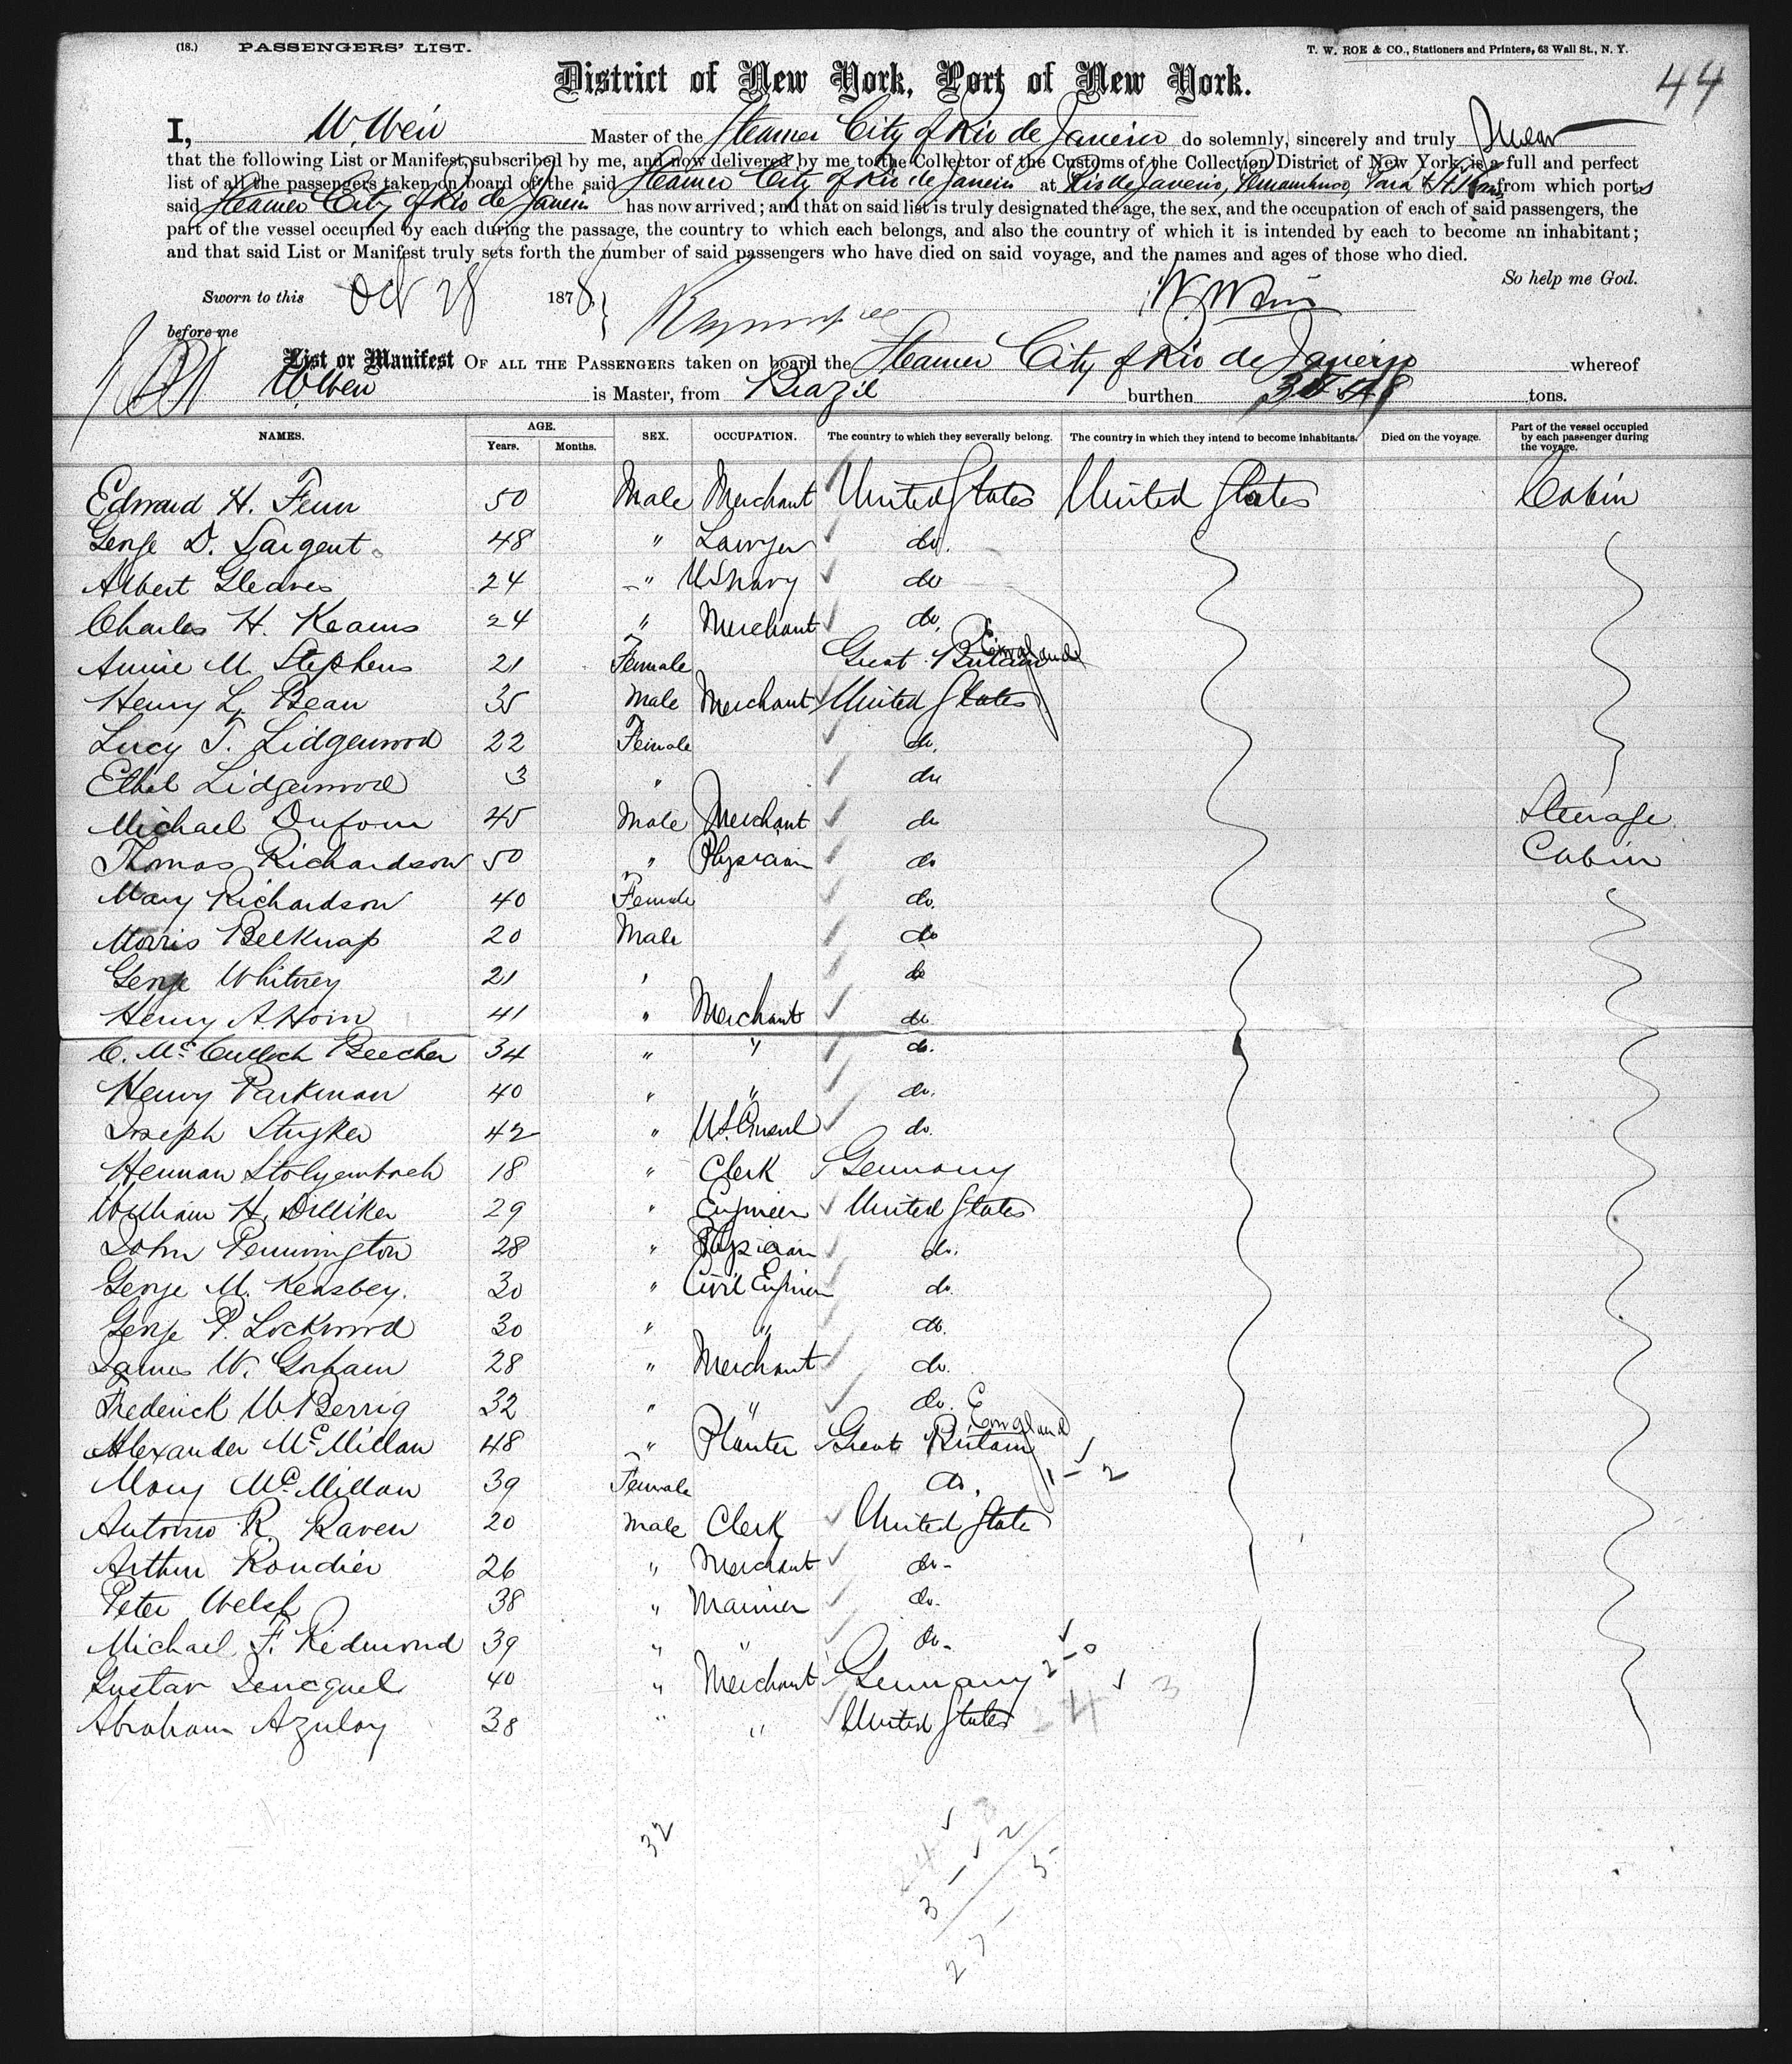 (18.) PASSENGERS' LIST. T. W. ROE & CO., Stationers and Printers, 63 Wall St., N. Y.
44
District of New York, Port of New York.
I, W. Weir Master of the Steamer City of Rio de Janeiro do solemnly, sincerely and truly Swear
that the following List or Manifest, subscribed by me, and now delivered by me to the Collector of the Customs of the Collection District of New York, is a full and perfect
list of all the passengers taken on board of the said Steamer City of Rio de Janeiro at Rio de Janeiro, Pernambuco, Para & St Thomas from which ports
said Steamer City of Rio de Janeiro has now arrived; and that on said list is truly designated the age, the sex, and the occupation of each of said passengers, the
part of the vessel occupied by each during the passage, the country to which each belongs, and also the country of which it is intended by each to become an inhabitant;
and that said List or Manifest truly sets forth the number of said passengers who have died on said voyage, and the names and ages of those who died.
So help me God.
Sworn to this Oct 28 1878 W. Weir
before me
List or Manifest OF ALL THE PASSENGERS taken on board the Steamer City of Rio de Janeiro whereof
W. Weir is Master, from Brazil burthen tons.
NAMES. AGE. Years. Months. SEX. OCCUPATION. The country to which they severally belong. The country in which they intend to become inhabitants. Died on the voyage. Part of the vessel occupied by each passenger during the voyage.
Edward H. Fenn 50 Male Merchant United States United States Cabin
George D. Sargent 48 " Lawyer do.
Albert Gleaves 24 " US Navy do
Charles H. Keams 24 " Merchant do.
Annie M. Stephens 21 Female Great Britain England
Henry L. Bean 35 Male Merchant United States
Lucy T. Lidgerwood 22 Female do.
Ethel Lidgerwood 3 " do
Michael Dufour 45 Male Merchant do Steerage
Thomas Richardson 50 " Physician do Cabin
Mary Richardson 40 Female do.
Morris Belknap 20 Male do
George Whitney 21 " do
Henry A. Horn 41 " Merchant do
C. McCulloch Beecher 34 " " do.
Henry Parkman 40 " " do.
Joseph Stryker 42 " U.S. Consul do.
Herman 18 " Clerk Germany
William H. Dilliker 29 " Engineer United States
John Pennington 28 " Physician do.
George M. Keasbey. 30 " Civil Engineer do.
George P. Lockwood 30 " " do.
James W. Gorham 28 " Merchant do.
Frederick W. Berrig 32 " " do.
Alexander McMillan 48 " Planter Great Britain England
Mary McMillan 39 Female do. 1 - 2
Antonio R. Raven 20 Male Clerk United State
Arthur Rondier 26 " Merchant do -
Peter Welsh 38 " Mariner do.
Michael F. Redmond 39 " " do -
Gustav Jencquel 40 " Merchant Germany 2 - 0
Abraham Azulay 38 " " United States 24 3
32
24 3
3 - 2
27 - 5